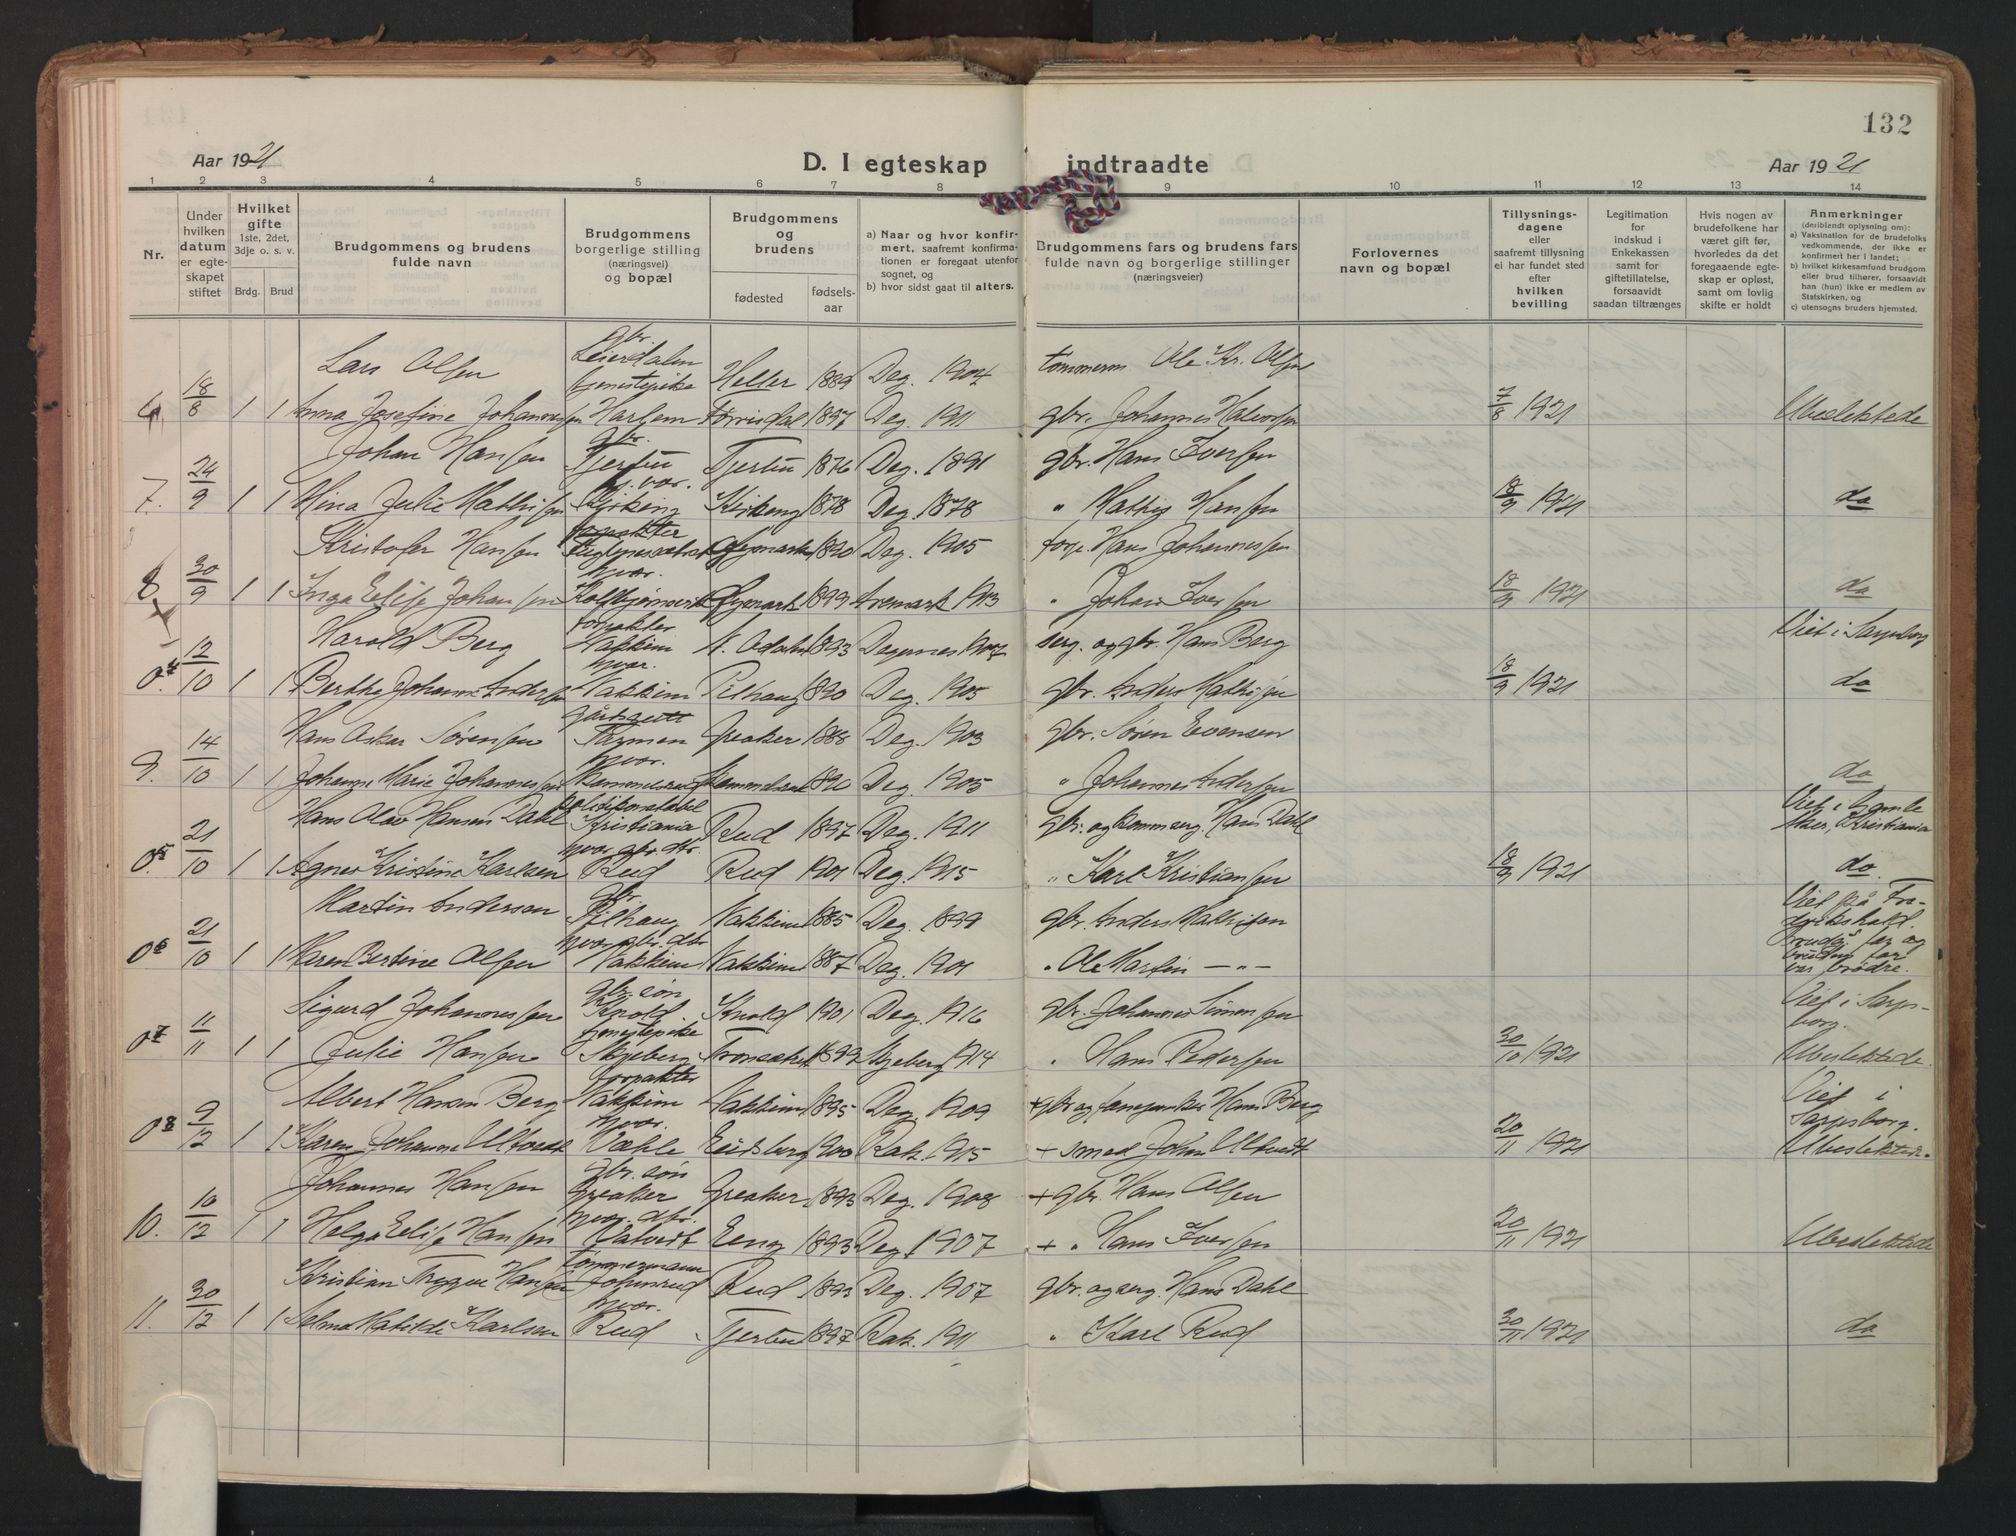 132
Aar 1921
D. I egteskap indtraadte
Aar 1921
1 2 3 4 5 6 7 8 9 10 11 12 13 14
Nr.
Under hvilken datum er egteskapet stiftet
Hvilket gifte 1ste, 2det, 3dje o. s. v.
Brdg. Brud
Brudgommens og brudens fulde navn
Brudgommens borgerlige stilling (næringsvei) og bopæl
Brudgommens og brudens
fødested fødselsaar
a) Naar og hvor konfirmert, saafremt konfirmationen er foregaat utenfor sognet, og
b) hvor sidst gaat til alters.
Brudgommens fars og brudens fars fulde navn og borgerlige stillinger (næringsveier)
Forlovernes navn og bopæl
Tillysningsdagene eller saafremt tillysning ei har fundet sted efter hvilken bevilling
Legitimation for indskud i Enkekassen samt for giftetillatelse, forsaavidt saadan tiltrænges
Hvis nogen av brudefolkene har været gift før, hvorledes da det foregaaende egteskap er opløst, samt om lovlig skifte er holdt
Anmerkninger (deriblandt oplysning om):
a) Vaksination for de brudefolks vedkommende, der ikke er konfirmert her i landet;
b) hvilket kirkesamfund brudgom eller brud tilhører, forsaavidt han (hun) ikke er medlem av Statskirken, og
c) utensogns bruders hjemsted.
Lars Olsen gbr. Heller 1889 Deg. 1904 tømmerm Ole Kr. Olsen
18/8 1 1 Anna Josefine Johannessen tjenestepike Harlem 1897 Deg. 1911 gbr. Johannes Halvorsen 7/8 1921 Ubeslektede
Johan Hansen gbr. Tjertu 1876 Deg. 1891 gbr. Hans Iversen
7. 24/9 1 1 Mina Julie Mathisen Kirkeng 1878 Deg. 1878 " Mathis Hansen 18/9 1921 do
Kristofer Hansen forpakter 1890 Deg. 1905 forp. Hans Johannessen
8 30/9 1 1 Inga Elise Johansen hvor. 1899 Aremark 1913 " Johan Iversen 18/9 1921 do
Harold Berg forpakter Nakkim 1893 Degernes 1907 serg. og gbr. Hans Berg Viet i Sarpsborg
04 12/10 1 1 Berthe Johanne Andersen hvor. Nakkim Pilhaug 1890 Deg. 1905 gbr. Anders Mathisen 18/9 1921 do
Hans Oskar Sørensen Greaker 1888 Deg. 1903 gbr. Søren Evensen
9. 14/10 1 1 Johanne Marie Johannessen hvor. 1890 Deg. 1905 " Johannes Andersen do
Hans Olav Hansen Dahl politikonstabel Kristiania Rud 1897 Deg. 1911 gbr. og komm.serg. Hans Dahl Viet i Gamle Aker, Kristiania
05 21/10 1 1 Agnes Kristine Karlsen hvor. gbr. dtr. Rud Rud 1901 Deg. 1915 " Karl Kristiansen 18/9 1921 do.
Martin Andersen gbr. Pilhaug Nakkim 1885 Deg. 1899 gbr. Anders Mathisen Viet på Fredrikshald.
06 21/10 1 1 Karen Bertine Olsen hvor. gbr. dtr. Nakkim Nakkim 1887 Deg. 1901 " Ole Martin — " — far og brudens far var brødre.
Sigurd Johannessen gbr. søn Knold Knold 1901 Deg. 1916 gbr. Johannes Simensen Viet i Sarpsborg.
07 11/11 1 1 Julie Hansen tjenestepike Skjeberg 1899 Skjeberg 1914 " Hans Pedersen 30/10 1921 Ubeslektede
Albert Hansen Berg forpakter Nakkim Nakkim 1895 Deg. 1909 + gbr og Hans Berg Viet i Sarpsborg.
08 9/12 1 1 Karen Johanne Ultvedt hvor. Eidsberg 1900 Rak. 1915 + smed Johan Ultvedt 20/11 1921 Ubeslektede.
Johannes Hansen gbr. søn Greaker Greaker 1893 Deg. 1908 + gbr. Hans Olsen
10. 10/12 1 1 Helga Elise Hansen hvor. dtr. Eeng 1893 Deg. 1907 + " Hans Iversen 20/11 1921 Ubeslektede
Kristian Trygve Hansen tømmermann Rud 1893 Deg. 1907 gbr. og serg. Hans Dahl
11. 30/12 1 1 Selma Matilde Karlsen hvor. Rud Tjertu 1897 Rak. 1911 " Karl Rud 30/11 1921 do